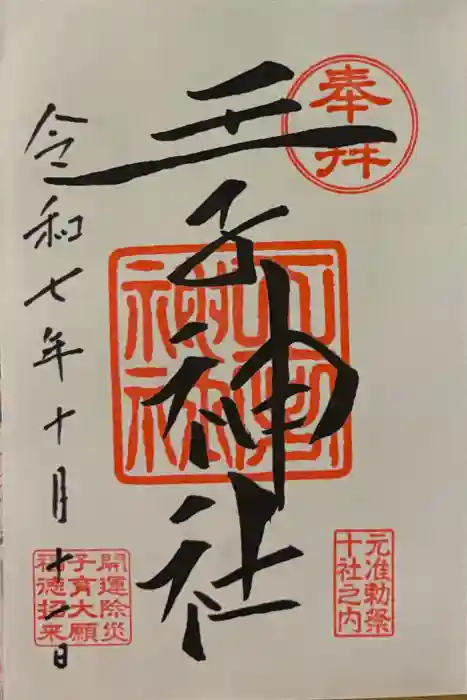 奉拝
王子神社
令和七年十月十一日
元准勅祭
十社之内
開運除災
子育大願
福徳招来